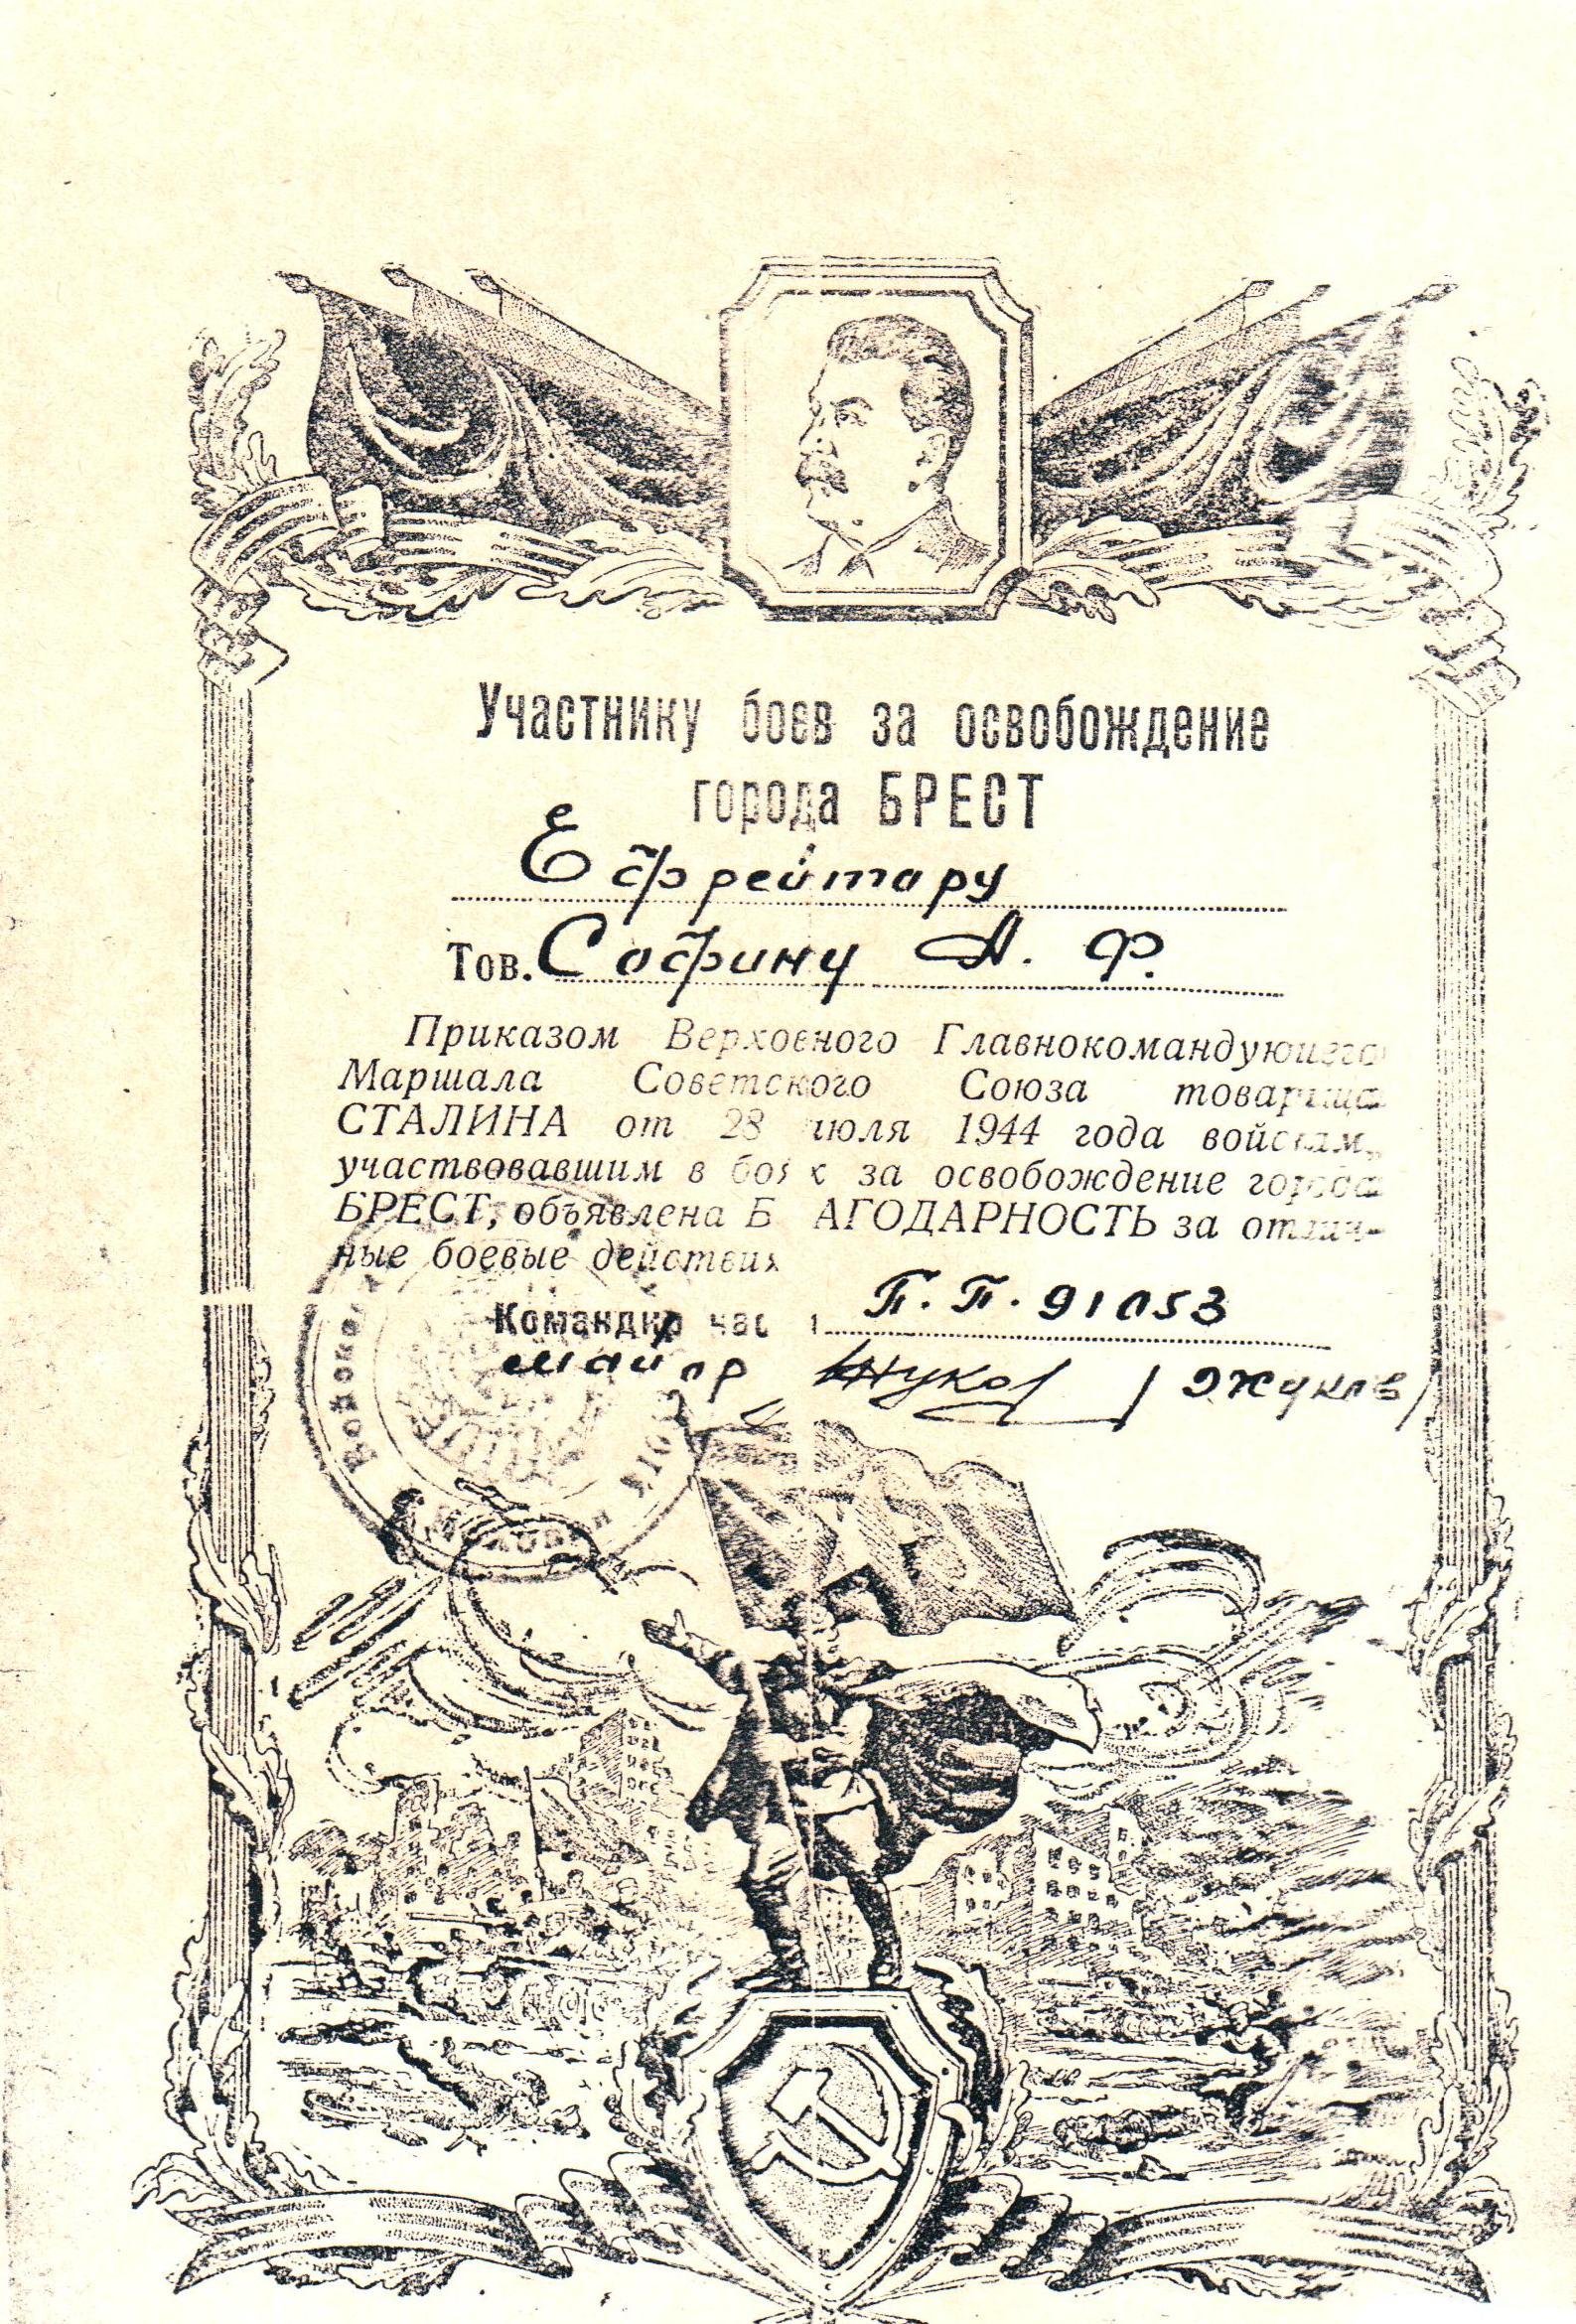 Участнику боев за освобождение
города БРЕСТ
Ефрейтору
Тов. Софину А. Ф.
Приказом Верховного Главнокомандующего
Маршала Советского Союза товарища
СТАЛИНА от 28 июля 1944 года войскам,
участвовавшим в боях за освобождение города
БРЕСТ, объявлена БЛАГОДАРНОСТЬ за отлич-
ные боевые действия
Командир части П.П. 91053
майор Жуков /Жуков/